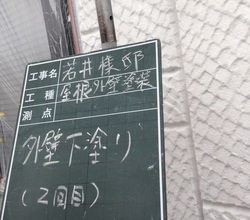 工事名 若井様邸
工種 屋根外壁塗装
測点
外壁下塗り
(2回目)